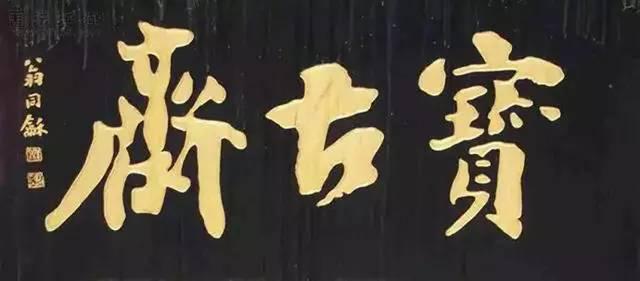 寳古齋
翁同龢